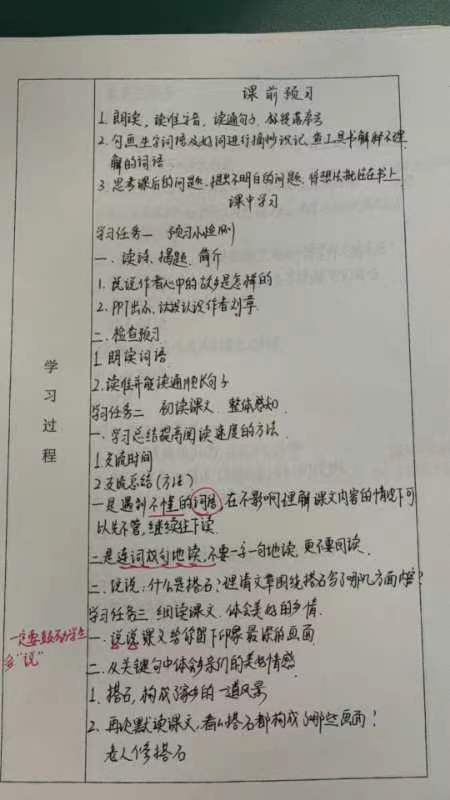 课前预习
1. 朗读，读准字音，读通句子，
2. 勾画生字词语及好词进行摘抄识记，查工具书解释不理
解的词语
3. 思考课后的问题，提出不明白的问题，将想法批注在书上
课中学习
学习任务一 预习小检测
一、读诗、揭题、简介
1. 说说作者心中的故乡是怎样的
2. PPT出示，认识作者刘章
二、检查预习
1. 朗读词语
2. 读准并能读通顺长句子
学习任务二 初读课文 整体感知
一、学习总结提高阅读速度的方法
1. 交流时间
2. 交流总结(方法)
一是遇到不懂的词语，在不影响理解课文内容的情况下可
以先不管，继续往下读
二是连词成句地读，不要一字一句地读，更不要回读。
二、说说：什么是搭石？理清文章围绕搭石写了哪几方面内容？
学习任务三 细读课文 体会美好的乡情
一、说说课文给你留下印象最深的画面
二、从关键句中体会乡亲们的美好情感
1. 搭石，构成了家乡的一道风景
2. 再次默读课文，看看搭石都构成了哪些画面？
老人修搭石
学习过程
一定要鼓励学生
多“说”